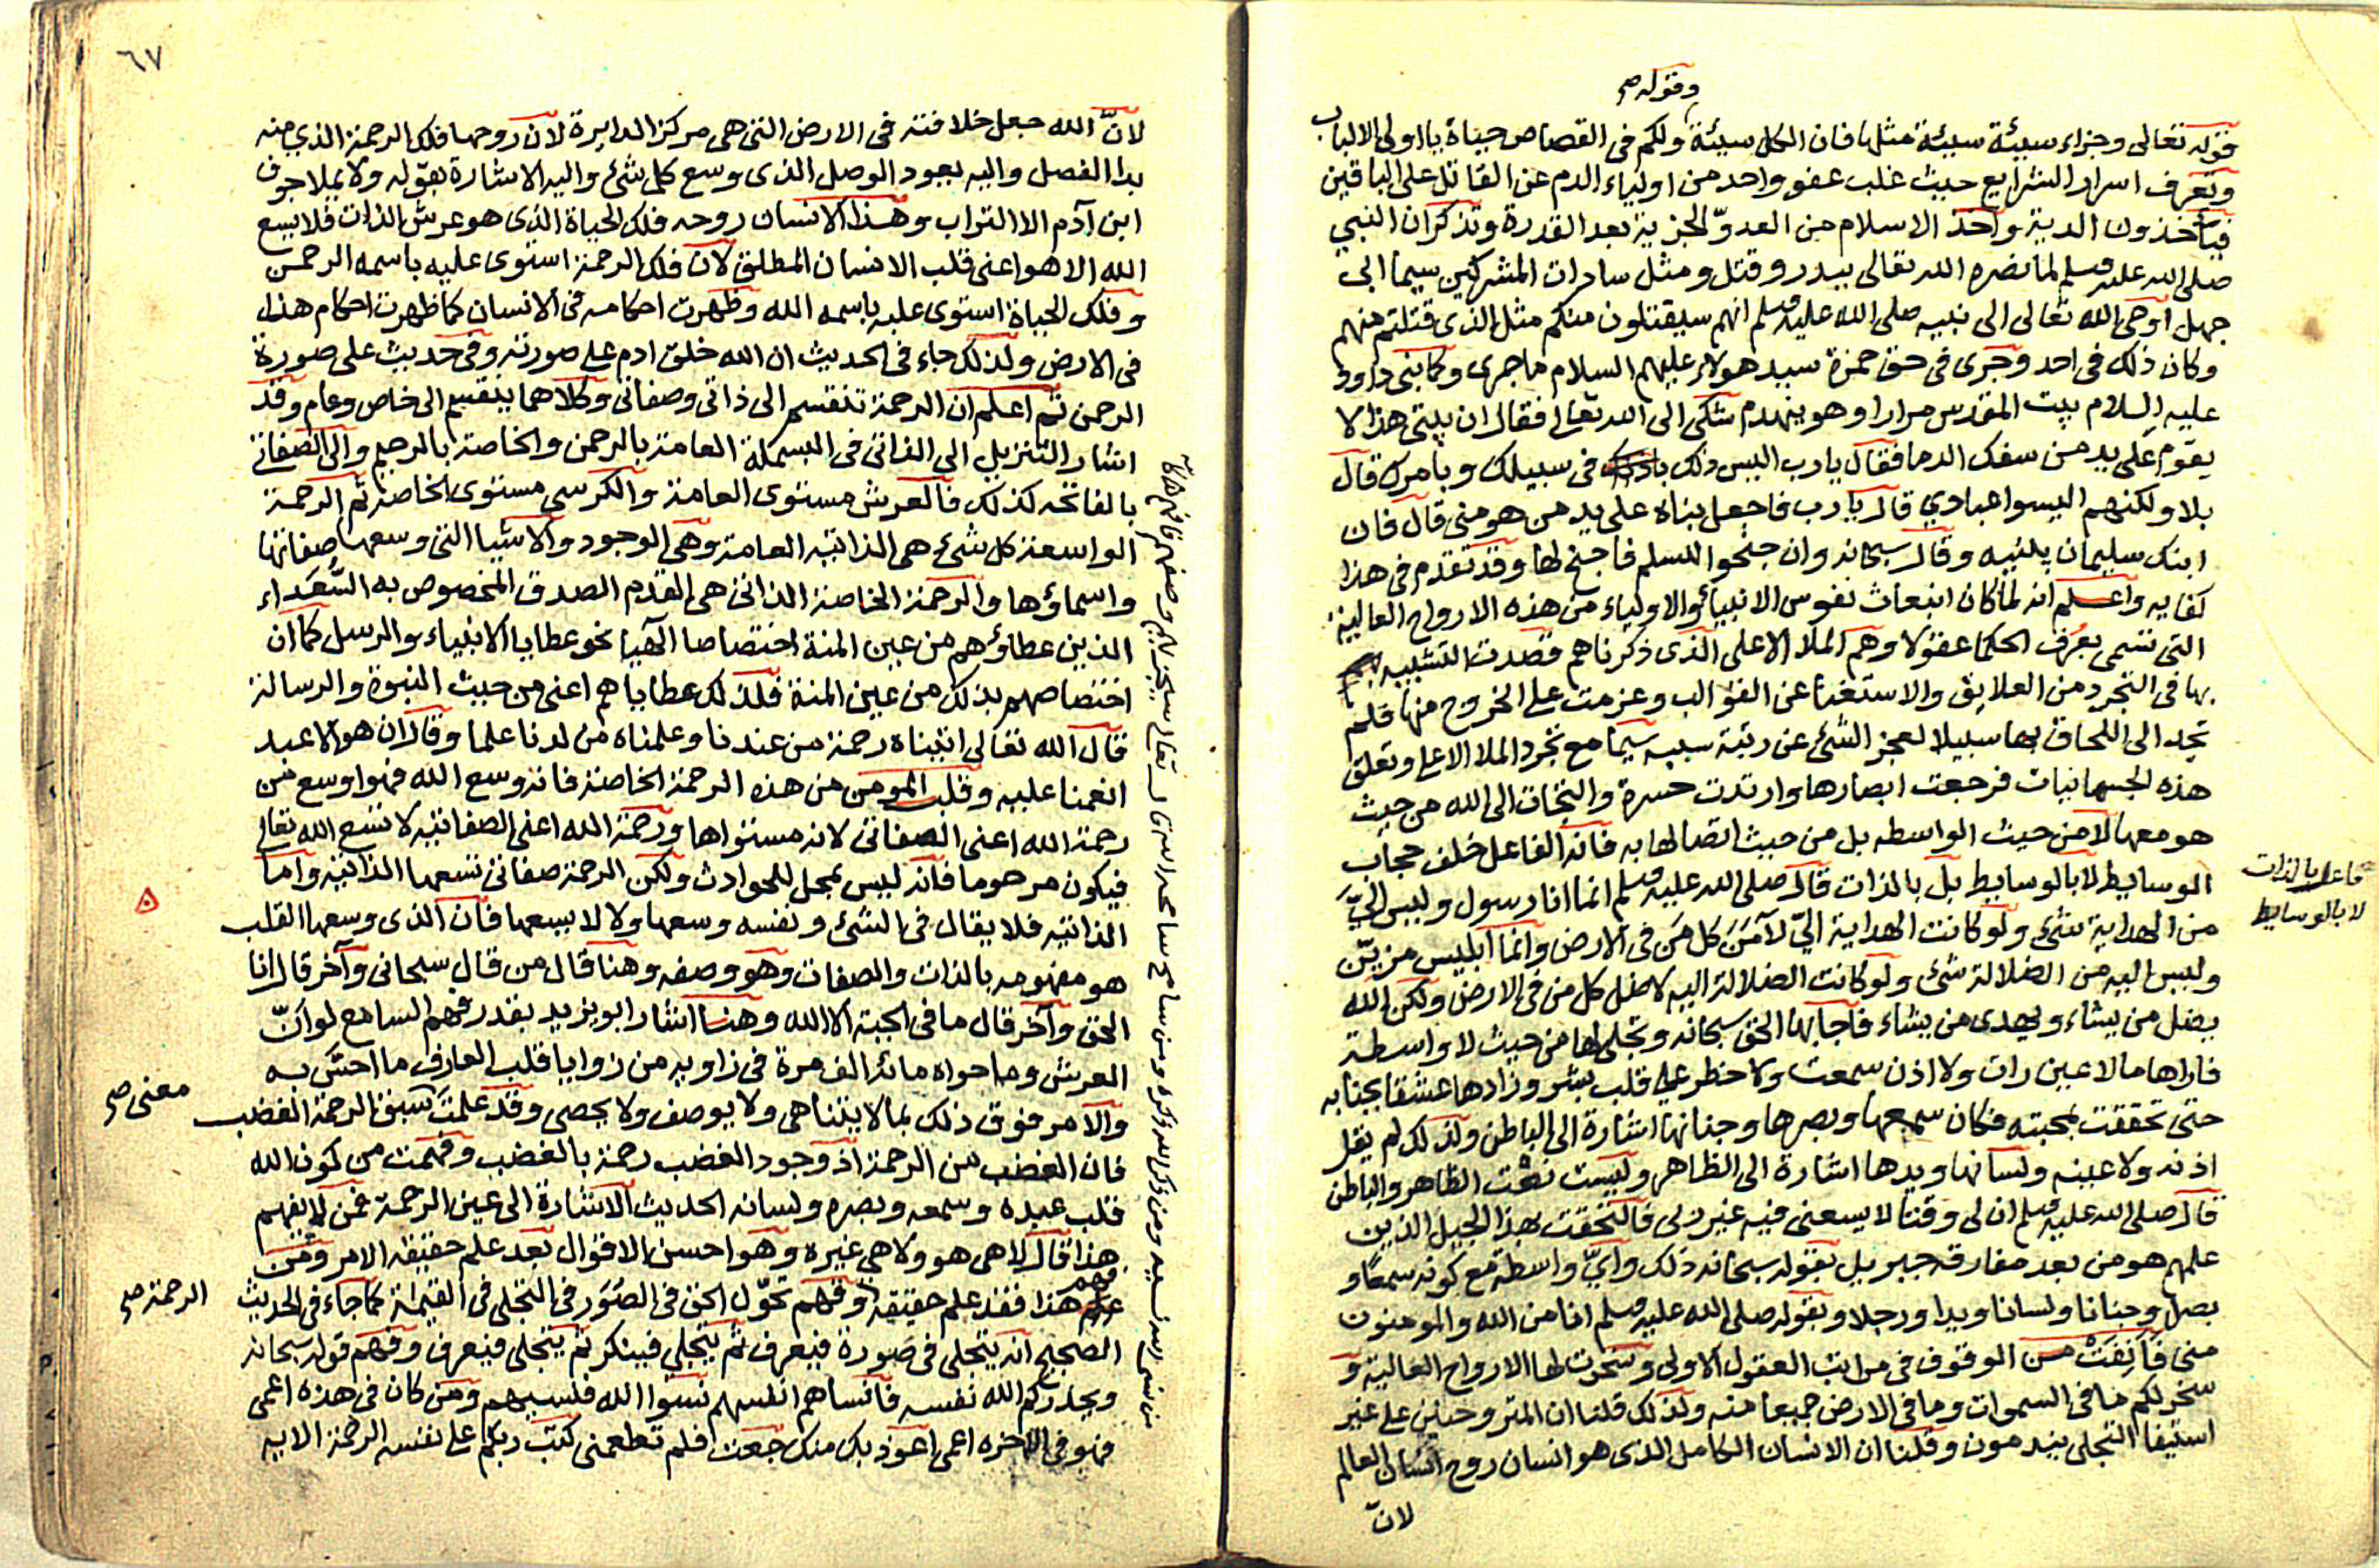 وقوله صح
قوله تعالى وجزاء سيئة سيئة مثلها فان الكل سيئة ولكم في القصاص حياة يا اولى الالباب
وتعرف اسرار الشرايع حيث غلب عفو واحد من اولياء الدم عن القاتل على الباقين
فيأخذون الدية واخذ الاسلام من العدوّ الجزية بعد القدرة وتذكر ان النبي
صلى الله عليه وسلم لما نصره الله تعالى ببدر وقتل ومثل سادات المشركين سيما ابى
جهل اوحى الله تعالى الى نبيه صلى الله عليه وسلم انهم سيقتلون منكم مثل الذى قتلتم منهم
وكان ذلك في احد وجرى في حق حمزة سيد هولاء عليهم السلام ما جرى وكما بنى داوود
عليه السلام بيت المقدس مرارا وهو ينهدم شكى الى الله تعالى فقال ان بيتى هذا لا
يقوم على يد من سفك الدما فقال يا رب اليس ذلك في سبيلك وبامرك قال
بلا ولكنهم اليسوا عبادي قال يا رب فاجعل بناه على يد من هو منى قال فان
ابنك سليمان يبنيه وقال سبحانه وان جنحوا للسلم فاجنح لها وقد تقدم في هذا
كفايه واعلم انه لما كان انبعاث نفوس الانبياء والاولياء من هذه الارواح العالية
التى تسمى بعرف الحكما عقولا وهم الملا الاعلى الذى ذكرناهم قصدت التشبيه
بها في التجرد من العلايق والاستغنا عن القوالب وعزمت على الخروج منها فلم
تجد الى اللحاق بها سبيلا لعجز الشئ عن رتبة سببه سيما مع تجرد الملا الاعلى وتعلق
هذه الجسمانيات فرجعت ابصارها وارتدت حسرة والتجات الى الله من حيث
هو معها لا من حيث الواسطه بل من حيث اتصالها به فانه الفاعل خلف حجاب
الوسايط لا بالوسايط بل بالذات قال صلى الله عليه وسلم انما انا رسول وليس اليّ
فاعل بالذات
لا بالوسايط
من الهداية شئ ولو كانت الهداية اليّ لآمَنَ كل مَن في الارض وانما ابليس مزيّن
وليس اليه من الضلالة شئ ولو كانت الضلالة اليه لاضل كل من في الارض ولكن الله
يضل من يشاء ويهدى من يشاء فاجابها الحق سبحانه وتجلى لها من حيث لا واسطة
فاراها ما لا عين رات ولا اذن سمعت ولا خطر على قلب بشر وزادها عشقا بجنابه
حتى تحققت بمحبته فكان سمعها وبصرها وجنانها اشارة الى الباطن ولذلك لم يقل
اذنه ولا عينه ولسانها ويدها اشارة الى الظاهر وليست تحت الظاهر والباطن
قال صلى الله عليه وسلم ان لى وقتا لا يسعنى فيه غير ربى فالتحقت بهذا الجيل الذين
علمهم هو من بعد مفارقة جبريل بقوله سبحانه ذلك وايّ واسطة مع كونه سمعًا و
بصرا وجنانا ولسانا ويدا ورجلا وبقوله صلى الله عليه وسلم انا من الله والمومنون
منى فَأَنِفَتْ من الوقوف في مراتب العقول الاولى وسخرت لها الارواح العالية و
سخر لكم ما في السموات وما في الارض جميعا منه ولذلك قلنا ان المتروحنين على غير
استيفا التجلى يندمون وقلنا ان الانسان الكامل الذى هو انسان روح انسان العالم
لانّ
٦٧
لانّ الله جعل خلافته في الارض التى هي مركز الدايرة لان روحها فلك الرحمة الذي منه
بدا الفصل واليه يعود الوصل الذى وسع كل شئ واليه الاشارة بقوله ولا يملا جوف
ابن آدم الا التراب وهذا الانسان روحه فلك الحياة الذى هو عرش الذات فلا يسع
الله الا هو اعنى قلب الانسان المطلق لان فلك الرحمة استوى عليه باسمه الرحمن
وفلك الحياة استوى عليه باسمه الله وظهرت احكامه في الانسان كما ظهرت احكام هذا
في الارض ولذلك جاء في الحديث ان الله خلق ادم على صورته وفي حديث على صورة
الرحمن ثم اعلم ان الرحمة تنقسم الى ذاتى وصفاتى وكلاهما ينقسم الى خاص وعام وقد
اشار التنزيل الى الذاتى في البسملة العامة بالرحمن والخاصة بالرحيم والى الصفاتى
بالفاتحه كذلك فالعرش مستوى العامة والكرسى مستوى الخاصة ثم الرحمة
الواسعة كل شئ هي الذاتيه العامة وهي الوجود والاشيا التى وسعها صفاتها
واسماؤها والرحمة الخاصة الذاتى هي القدم الصدق المخصوص به السُّعَداء
الذين عطاؤهم من عين المنة اختصاصا آلهيا نحو عطايا الانبياء والرسل كما ان
اختصاصهم بذلك من عين المنة فلذلك عطاياهم اعنى من حيث النبوة والرسالة
قال الله تعالى اتيناه رحمة من عندنا وعلمناه من لدنا علما وقال ان هو الا عبد
انعمنا عليه وقلب المومن من هذه الرحمة الخاصة فانه وسع الله فهو اوسع من
رحمة الله اعنى الصفاتى لانه مستواها ورحمة الله اعنى الصفاتيه لا تسع الله تعالى
فيكون مرحوما فانه ليس بمحل للحوادث ولكن الرحمة صفاتى تسعها الذاتية واما
الذاتيه فلا يقال في الشئ ونفسه وسعها ولا لا يسعها فان الذى وسعها القلب
هو مفهومه بالذات والصفات وهو وصفه وهنا قال من قال سبحانى وآخر قال انا
الحق وآخر قال ما في الجبة الا الله وهنا اشار ابو يزيد بقدر فهم السامع لو انّ
العرش وما حواه مائة الف مرة في زاويه من زوايا قلب العارف ما احسّ به
والامر فوق ذلك بما لا يتناهى ولا يوصف ولا يحصى وقد علمتَ سبق الرحمة الغضب
معنى صح
فان الغضب من الرحمة اذ وجود الغضب رحمة بالغضب وفهمت من كون الله
قلب عبده وسمعه وبصره ولسانه الحديث الاشارة الى عين الرحمة فمن لا يفهم
هذا قال لا هي هو ولا هي غيره وهو احسن الاقوال بعد علم حقيقه الامر ومن
فهم
هذا فقد علم حقيقة وفهم تحوّل الحق في الصُوَر في التجلى في القيمة كما جاء في الحديث
الرحمة صح
الصحيح انه يتجلى في صورة فيعرف ثم يتجلى فينكر ثم يتجلى فيعرف وفهم قوله سبحانه
ويحذركم الله نفسه فانساهم انفسهم نسوا الله فنسيهم ومن كان في هذه اعمى
فهو في الاخره اعمى اعوذ بك منك جعت فلم تطعمنى كتب ربكم على نفسه الرحمة الايه